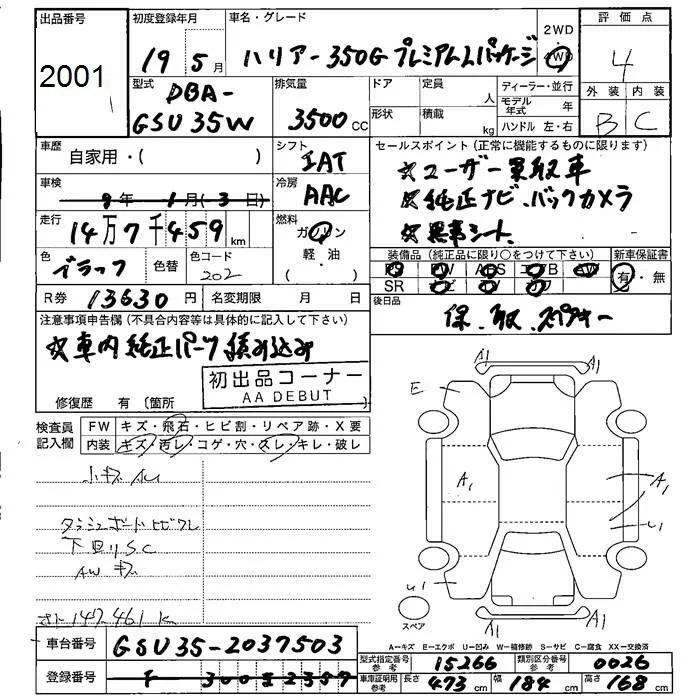 出品番号
2001
初度登録年月
19 5月
車名・グレード
ハリアー 350G プレミアムLパッケージ
2WD
4WD
評価点
4
外装 内装
B C
型式
DBA-
GSU35W
排気量
3500cc
ドア
定員
人
形状
積載
kg
ディーラー・並行
モデル年式 年
ハンドル 左・右
車歴
自家用・( )
シフト
IAT
セールスポイント(正常に機能するものに限ります)
☆ユーザー買取車
☆純正ナビ、バックカメラ
☆黒革シート
車検
9年 1月(3日)
冷房
AAC
走行
14万7千459km
燃料
ガソリン
軽・油
( )
色
ブラック
色替
色コード
202
装備品(純正品に限り○をつけて下さい)
PS PW ABS エアB AW
SR
新車保証書
有・無
R券 13630円
名変期限 月 日
後日品
保、取、スペアキー
注意事項申告欄(不具合内容等は具体的に記入して下さい)
☆車内純正パーツ積み込み
初出品コーナー
AA DEBUT
修復歴 有(箇所
検査員記入欄
FW キズ・飛石・ヒビ割・リペア跡・X要
内装 キズ・汚レ・コゲ・穴・スレ・キレ・破レ
小キズ AU
ダッシュボードヒビワレ
下回りS.C
AWキズ
A1 A1
E
A1
A1
U1
U1
スペア
A1 A1
A−キズ E−エクボ U−凹み W−補修跡 S−サビ C−腐食 XX−交換済
車台番号
GSU35-2037503
登録番号
型式指定番号 参考
15266
類別区分番号 参考
0026
車庫証明用参考
長さ 473cm
幅 184cm
高さ 168cm